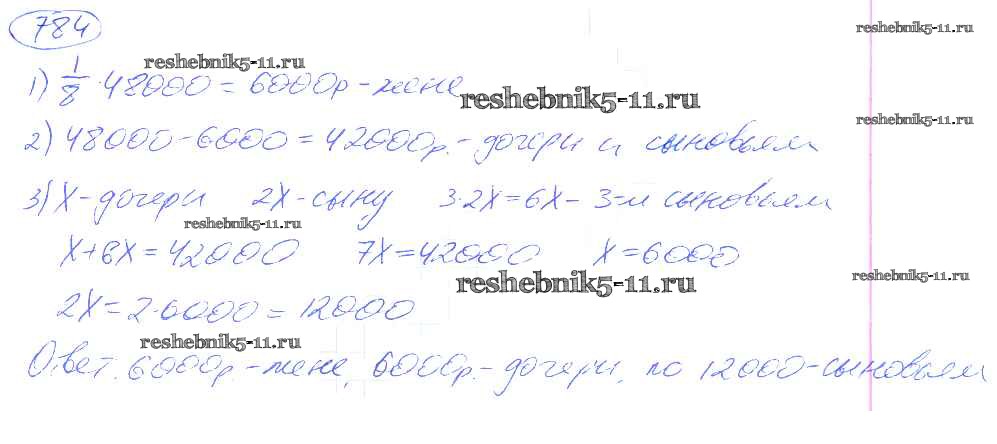 784
reshebnik5-11.ru
reshebnik5-11.ru
1) 1/8 · 48000 = 6000р - жене
reshebnik5-11.ru
reshebnik5-11.ru
2) 48000 - 6000 = 42000р. - дочери и сыновьям
3) X - дочери 2X - сыну 3·2X = 6X - 3-м сыновьям
reshebnik5-11.ru
X + 6X = 42000 7X = 42000 X = 6000
reshebnik5-11.ru
reshebnik5-11.ru
2X = 2·6000 = 12000
reshebnik5-11.ru
Ответ. 6000р - жене, 6000р. - дочери, по 12000 - сыновьям